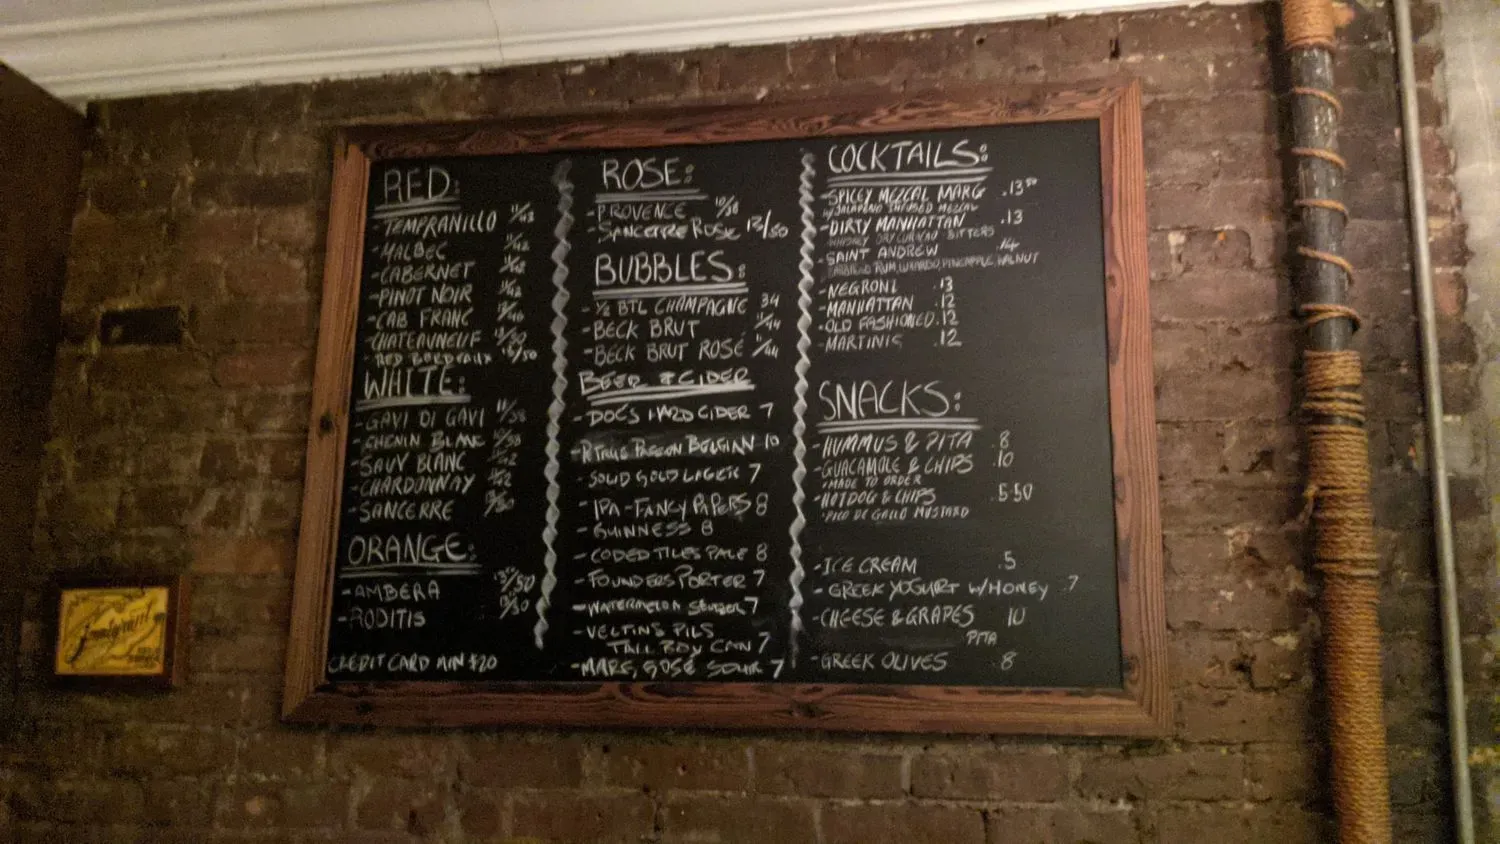 RED:
-TEMPRANILLO 11/43
-MALBEC 11/42
-CABERNET 11/42
-PINOT NOIR 11/42
-CAB FRANC 12/46
-CHATEAUNEUF /50
-RED BORDEAUX 13/50
WHITE:
-GAVI DI GAVI 11/38
-CHENIN BLANC /38
-SAUV BLANC /42
-CHARDONNAY /42
-SANCERRE /50
ORANGE:
-AMBERA 13/50
-RODITIS /50
CREDIT CARD MIN $20
ROSE:
-PROVENCE 10/38
-SANCERRE ROSE 13/50
BUBBLES:
-½ BTL CHAMPAGNE 34
-BECK BRUT 11/44
-BECK BRUT ROSÉ 11/44
BEER & CIDER
-DOC'S HARD CIDER 7
BELGIAN 10
-SOLID GOLD LAGER 7
-IPA-FANCY PAPERS 8
-GUINNESS 8
-CODED TILES PALE 8
-FOUNDERS PORTER 7
-WATERMELON SELTZER 7
-VELTINS PILS
TALL BOY CAN 7
-MARG, GOSE SOUR 7
COCKTAILS:
-SPICEY MEZCAL MARG .13
W/JALAPENO INFUSED MEZCAL
-DIRTY MANHATTAN .13
WHISKEY DRY CURACAO BITTERS
-SAINT ANDREW .14
RUM, LUXARDO, PINEAPPLE, WALNUT
-NEGRONI .13
-MANHATTAN .12
-OLD FASHIONED .12
-MARTINIS .12
SNACKS:
-HUMMUS & PITA .8
-GUACAMOLE & CHIPS .10
MADE TO ORDER
-HOTDOG & CHIPS .5.50
PICO DE GALLO MUSTARD
-ICE CREAM .5
-GREEK YOGURT W/HONEY .7
-CHEESE & GRAPES 10
PITA
-GREEK OLIVES .8